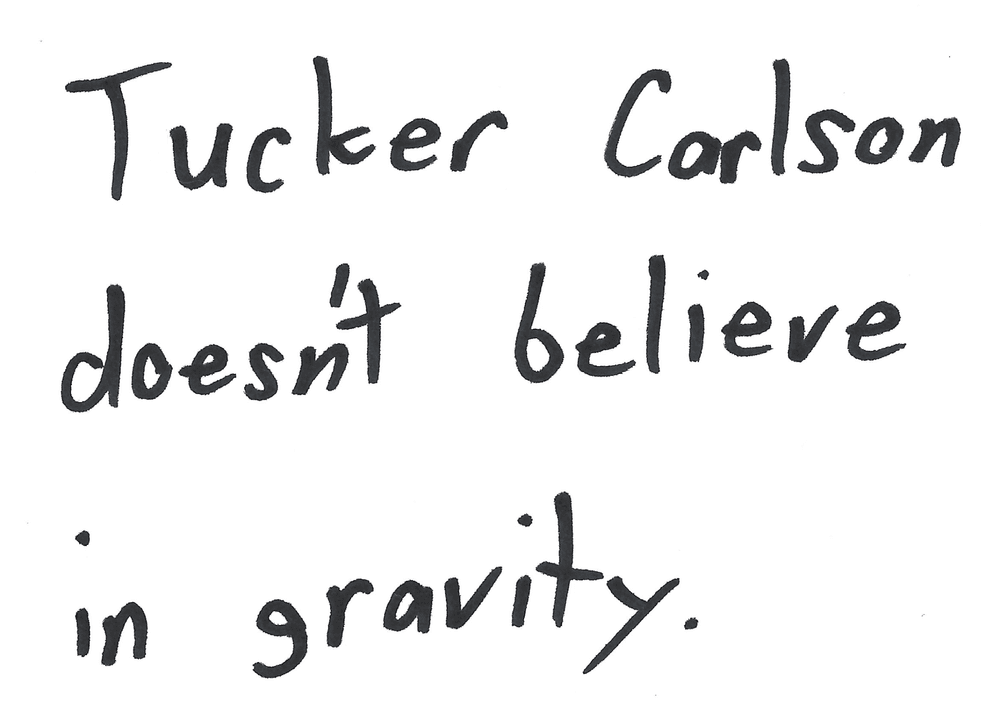 Tucker Carlson
doesn't believe
in gravity.